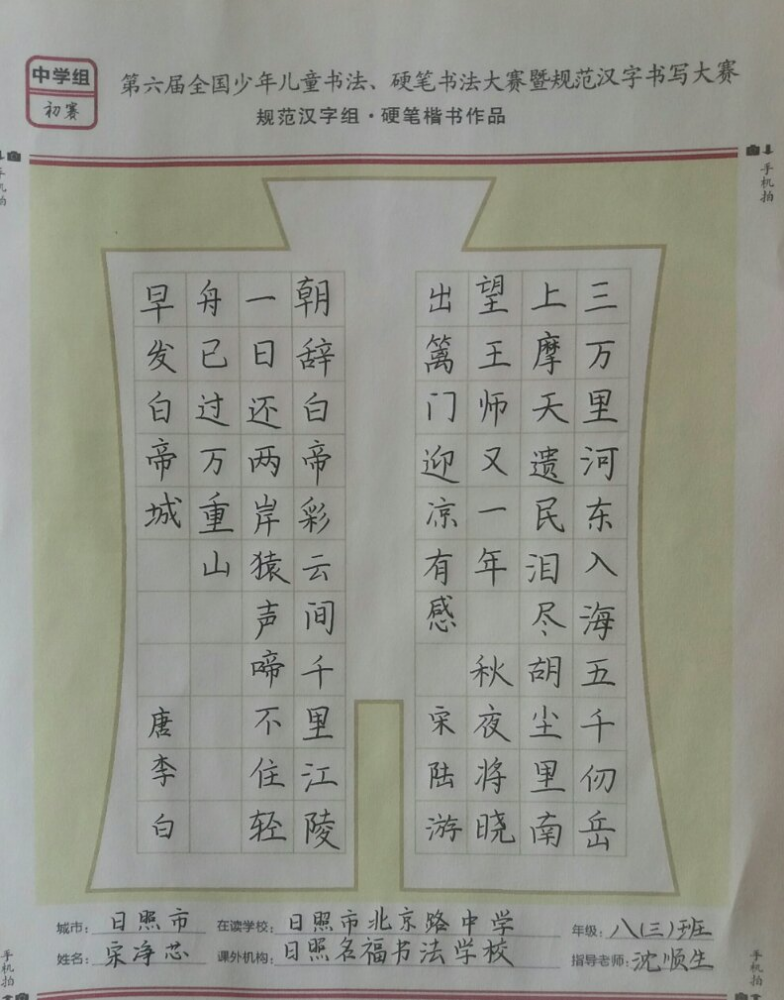 中学组
初赛
第六届全国少年儿童书法、硬笔书法大赛暨规范汉字书写大赛
规范汉字组·硬笔楷书作品
手机拍
手机拍
三万里河东入海五千仞岳
上摩天遗民泪尽胡尘里南
望王师又一年 秋夜将晓
出篱门迎凉有感 宋陆游
朝辞白帝彩云间千里江陵
一日还两岸猿声啼不住轻
舟已过万重山
早发白帝城 唐李白
城市: 日照市 在读学校: 日照市北京路中学 年级: 八(三)班
姓名: 宋净芯 课外机构: 日照名福书法学校 指导老师: 沈顺生
手机拍
手机拍